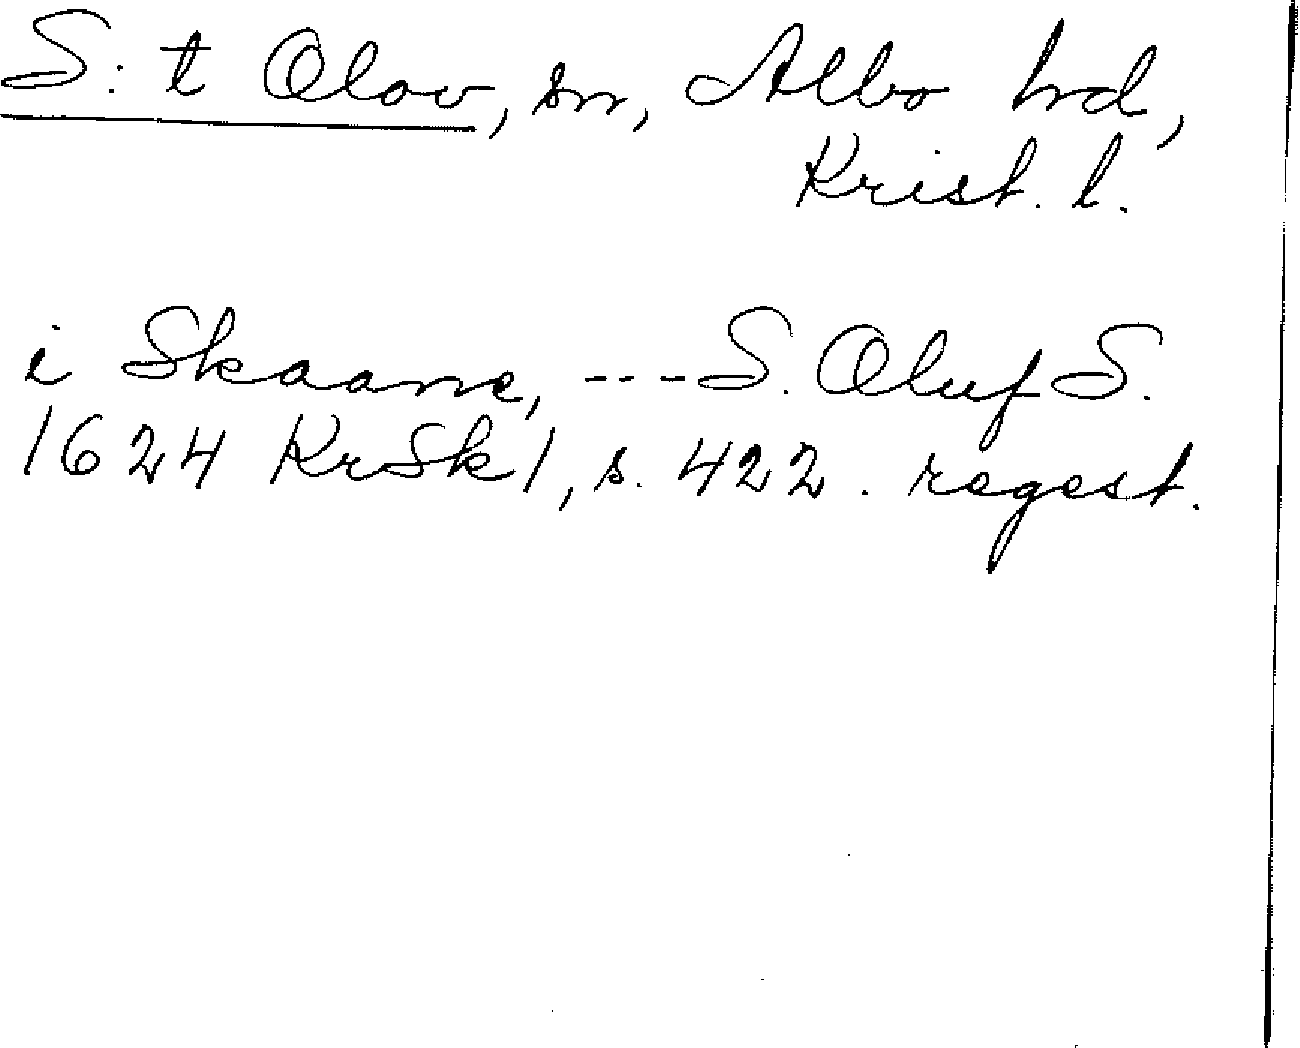 S:t Olov, sn, Albo hd,
Krist. l.
i Skaane, --- S. Oluf S.
1624 KrSk 1, s. 422. regest.